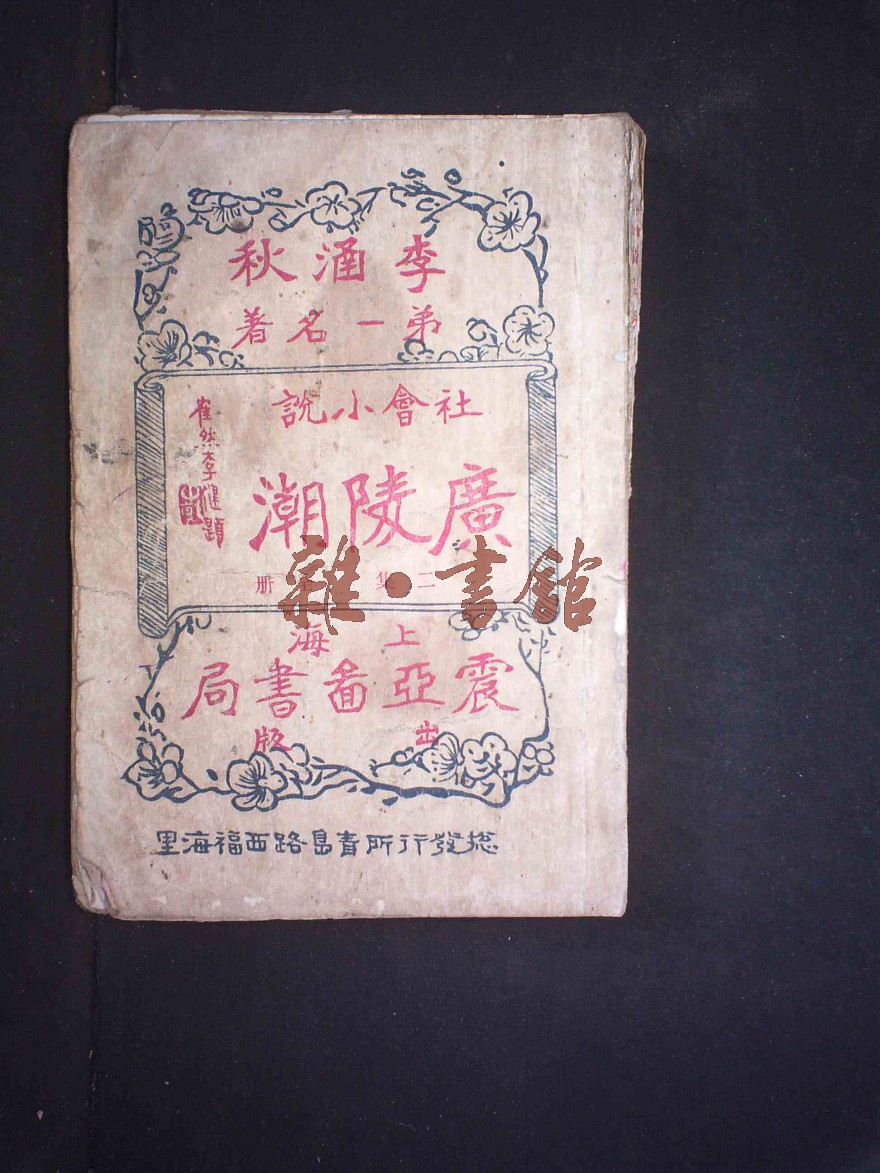 李涵秋
弟一名著
社會小說
廣陵潮
集 册
崔然李健題
上海
震亞啚書局
出版
總發行所青島路西福海里
雜·書館